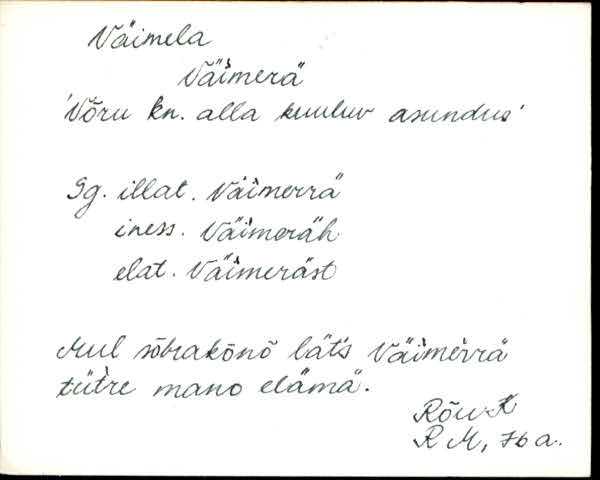 Väimela
Väi̬merä
'Võru kn. alla kuuluv asundus'
Sg. illat. Väimerrä
iness. Väimeräh
elat. Väimeräst
Mul sõbrakõnõ läts Väimerrä
tütre mano elämä.
Rõu K
R M, 76 a.